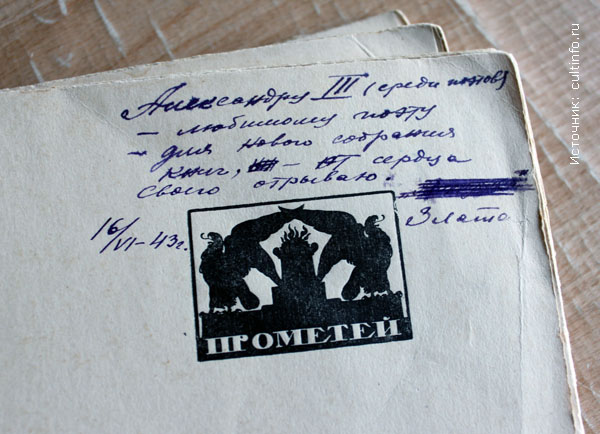 Александру III (среди поэтов)
– любимому поэту
– для нового собрания
книг, – от сердца
своего отрываю.
Злата
16/VI-43г.
ПРОМЕТЕЙ
Источник: cultinfo.ru